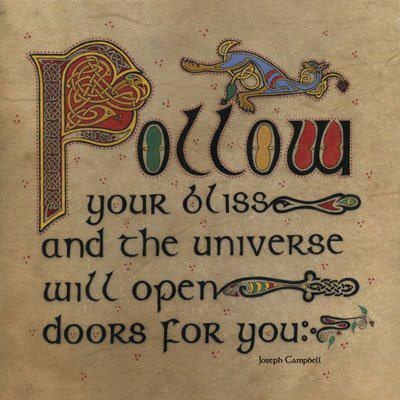 Follow
your bliss
and the universe
will open
doors for you:
Joseph Campbell